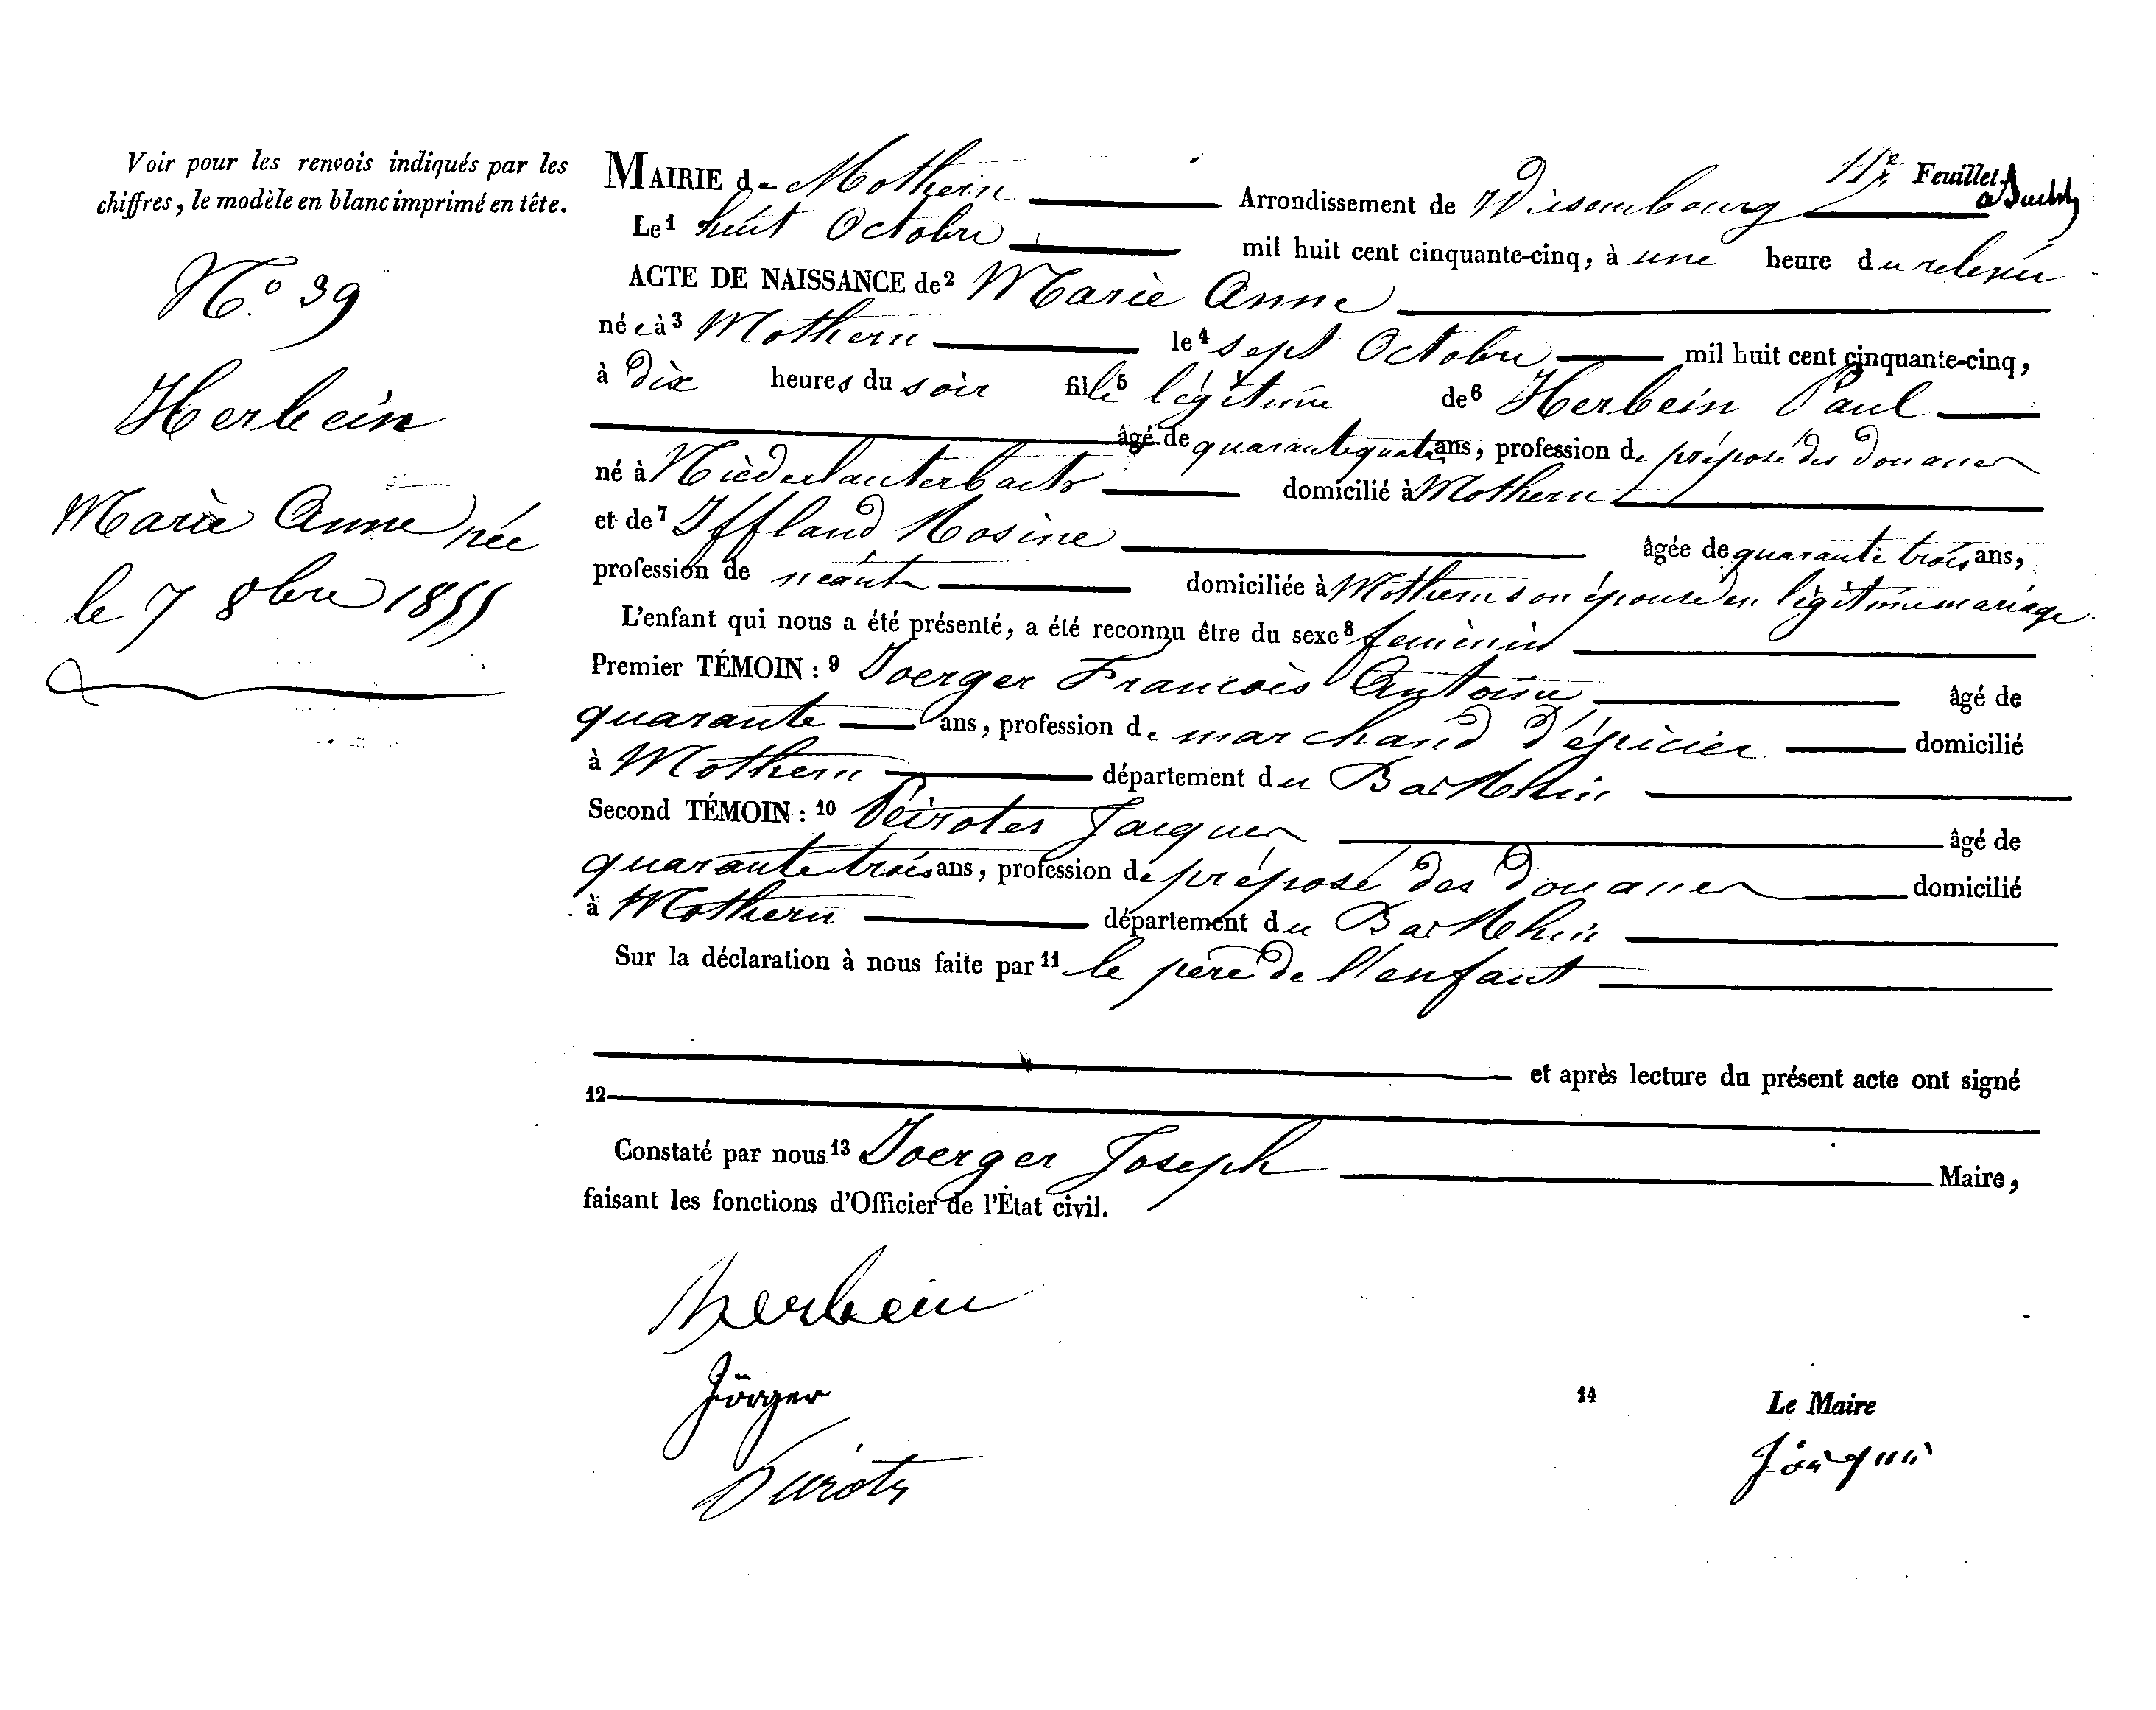 Voir pour les renvois indiqués par les
chiffres, le modèle en blanc imprimé en tête.
N.o 39
Herbein
Marie Anne née
le 7 8bre 1855
11e Feuillet
MAIRIE de Mothern Arrondissement de Wissembourg
Le 1 huit Octobre mil huit cent cinquante-cinq, à une heure du relevée
ACTE DE NAISSANCE de 2 Marie Anne
née à 3 Mothern le 4 sept Octobre mil huit cent cinquante-cinq,
à dix heures du soir fille 5 légitime de 6 Herbein Paul
âgé de quarante quatre ans, profession de préposé des douanes
né à Niederlauterbach domicilié à Mothern
et de 7 Iffland Rosine âgée de quarante trois ans,
profession de néant domiciliée à Mothern son épouse en légitime mariage
L'enfant qui nous a été présenté, a été reconnu être du sexe 8 feminin
Premier TÉMOIN : 9 Joerger Francois Antoine âgé de
quarante ans, profession de marchand d'épicier domicilié
à Mothern département du Bas Rhin
Second TÉMOIN : 10 Peirotes Jacques âgé de
quarante trois ans, profession de préposé des douanes domicilié
à Mothern département du Bas Rhin
Sur la déclaration à nous faite par 11 le père de l'enfant
et après lecture du présent acte ont signé
12
Constaté par nous 13 Joerger Joseph Maire,
faisant les fonctions d'Officier de l'État civil.
Herbein
Jörger
14 Le Maire
Peirotes